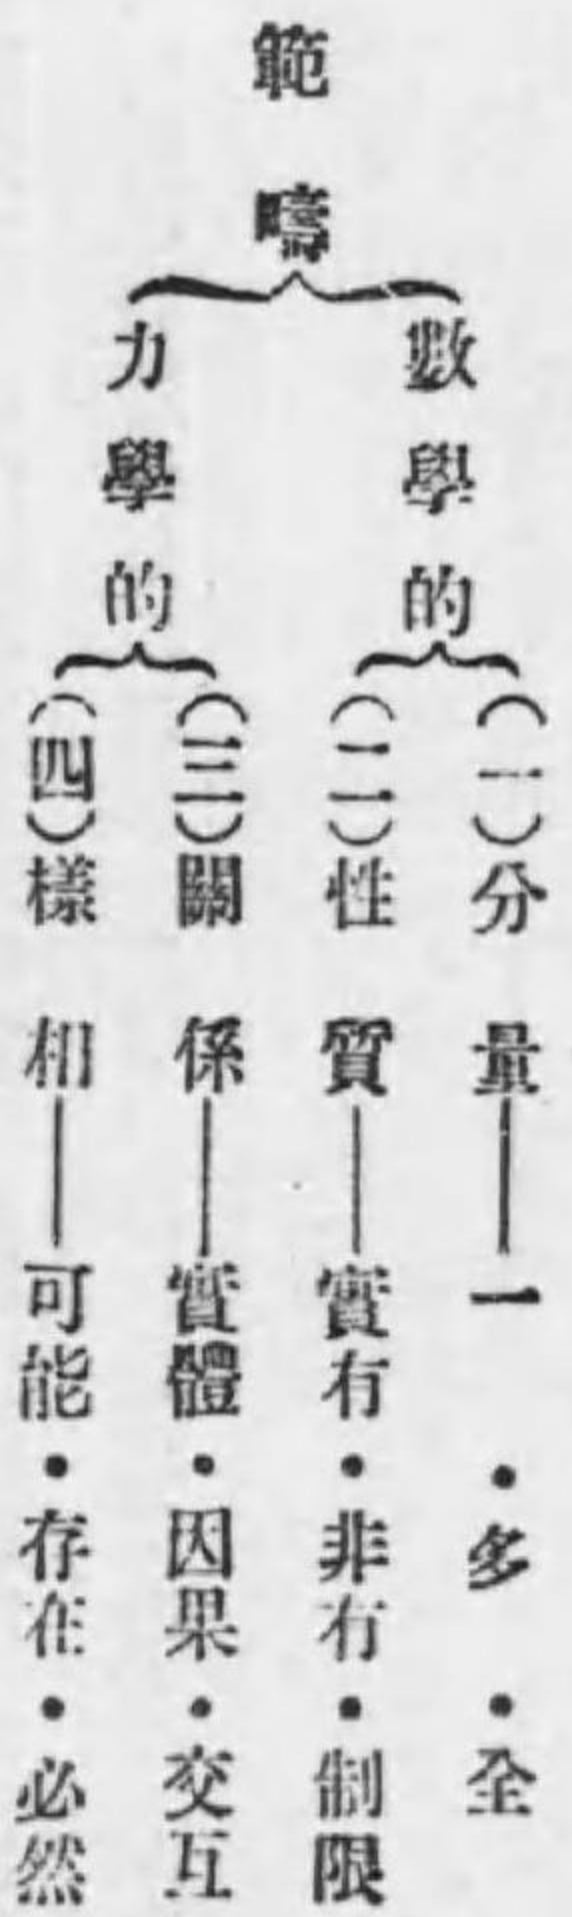 範疇
數學的
(一)分量――一・多・全
(二)性質――實有・非有・制限
力學的
(三)關係――實體・因果・交互
(四)樣相――可能・存在・必然